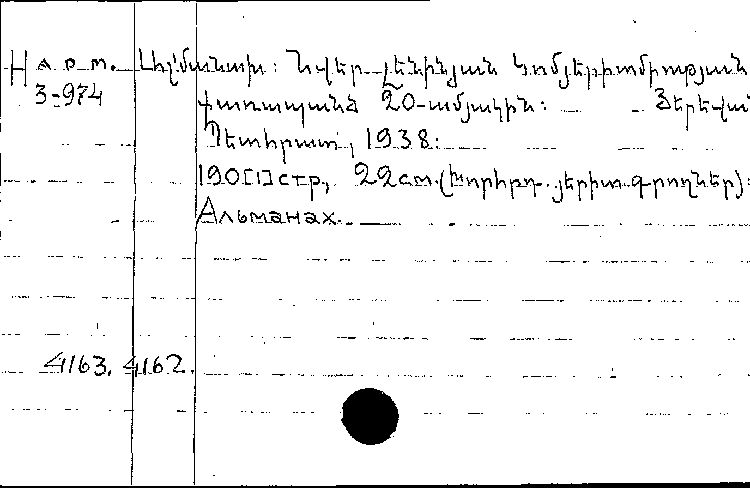 Н а р т. Ալմանախ: Նվեր լենինյան կոմյերիտմիության
3-974 փառապանծ 20-ամյակին: Յերևան
Պետհրատ, 1938:
190[1]стр, 22см. (Խորհրդ. յերիտ. գրողներ):
Альманах.
4163. 4162.